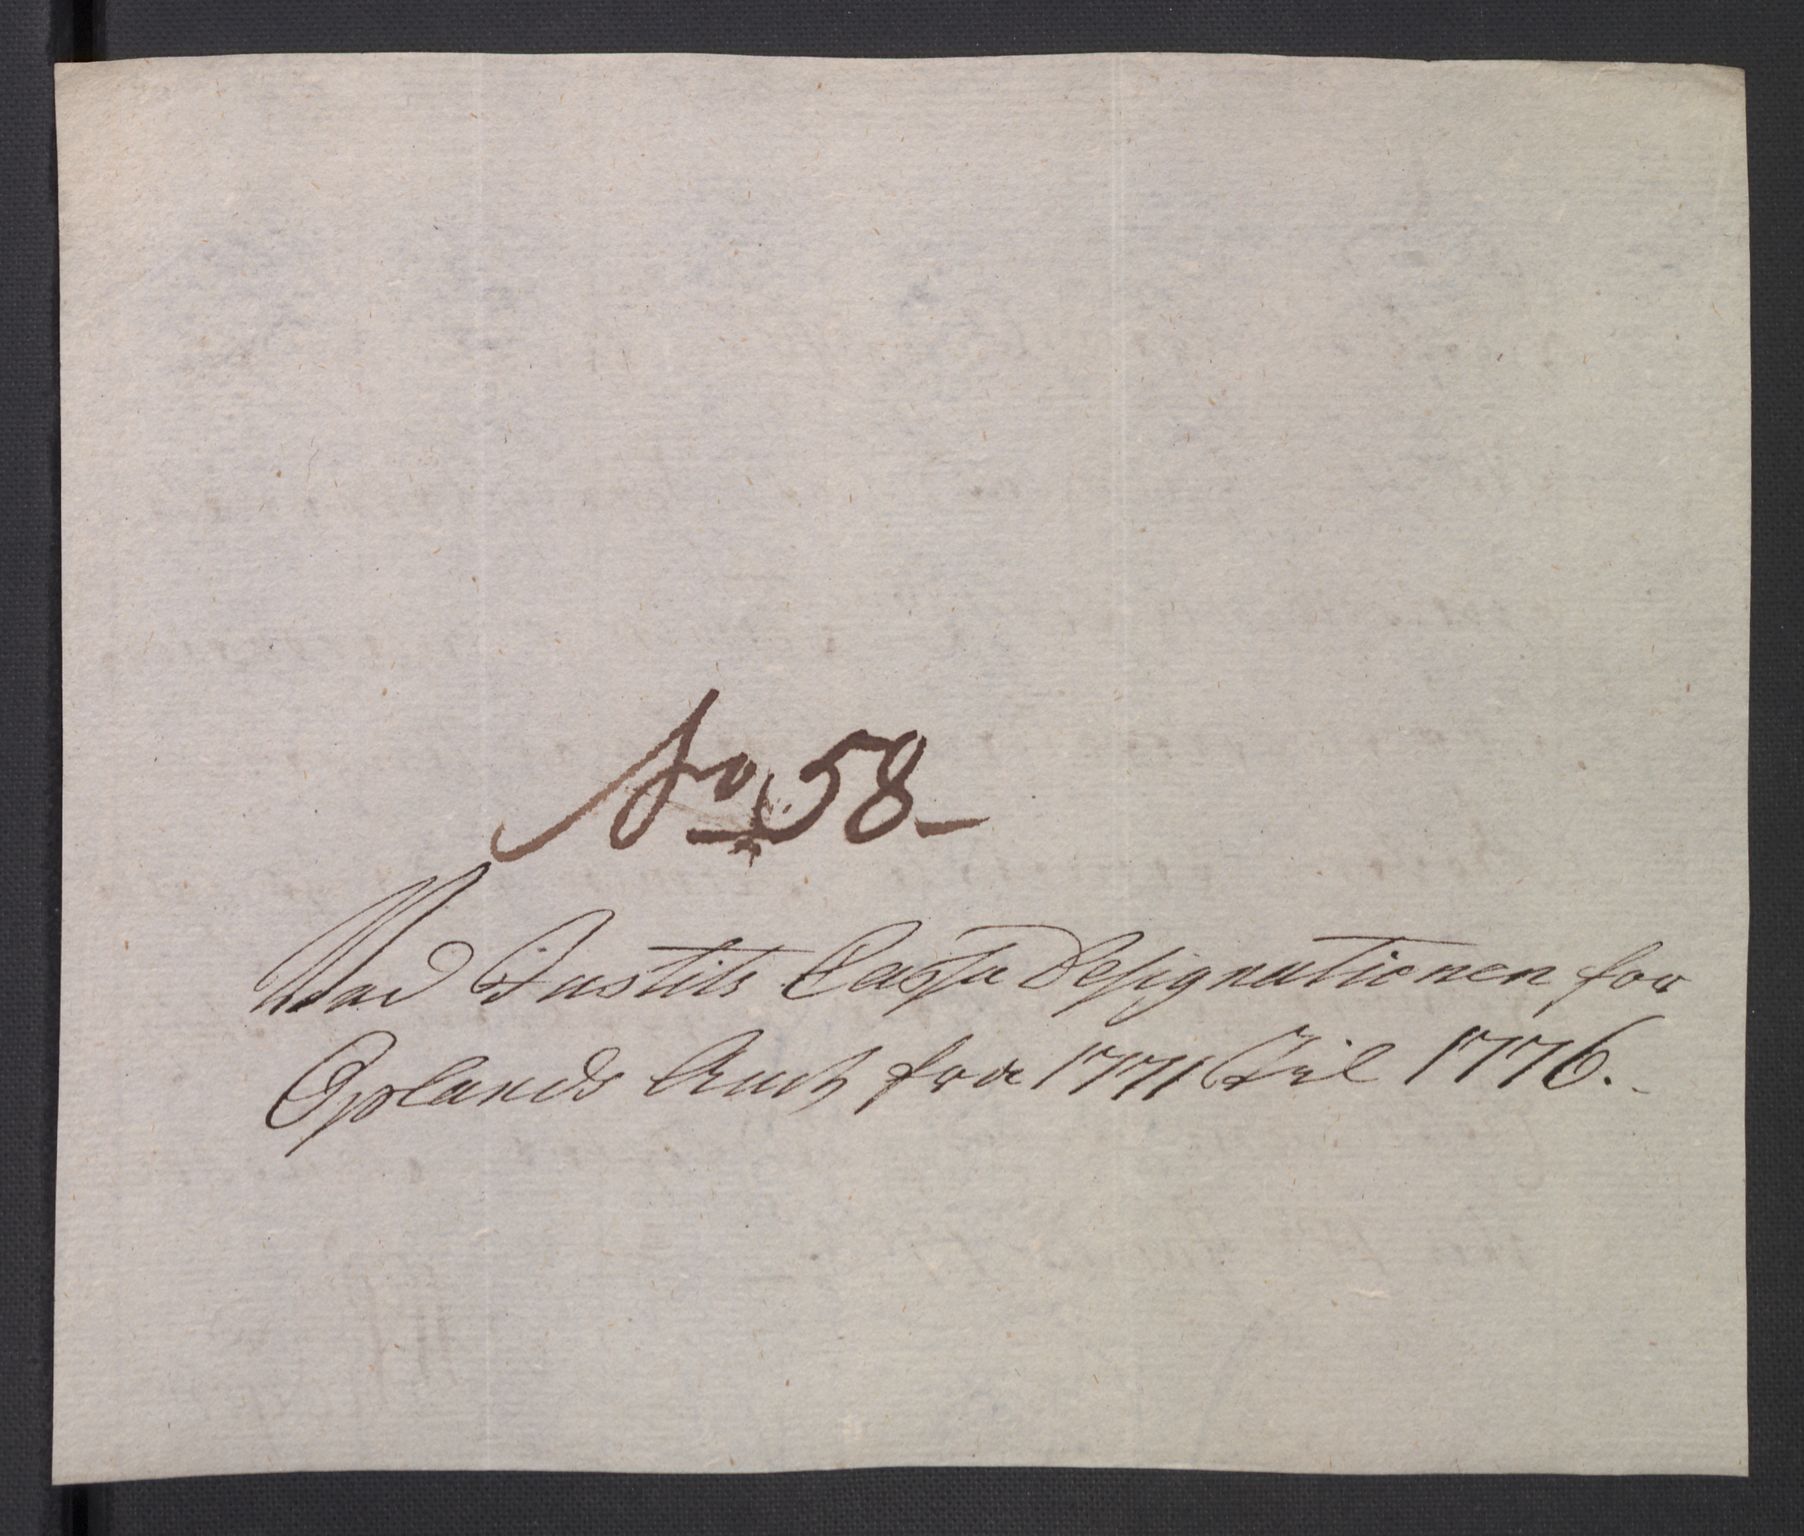 No 58
Ved Justits Cassa Designationen for
Oplands Amt fra 1771 til 1776.